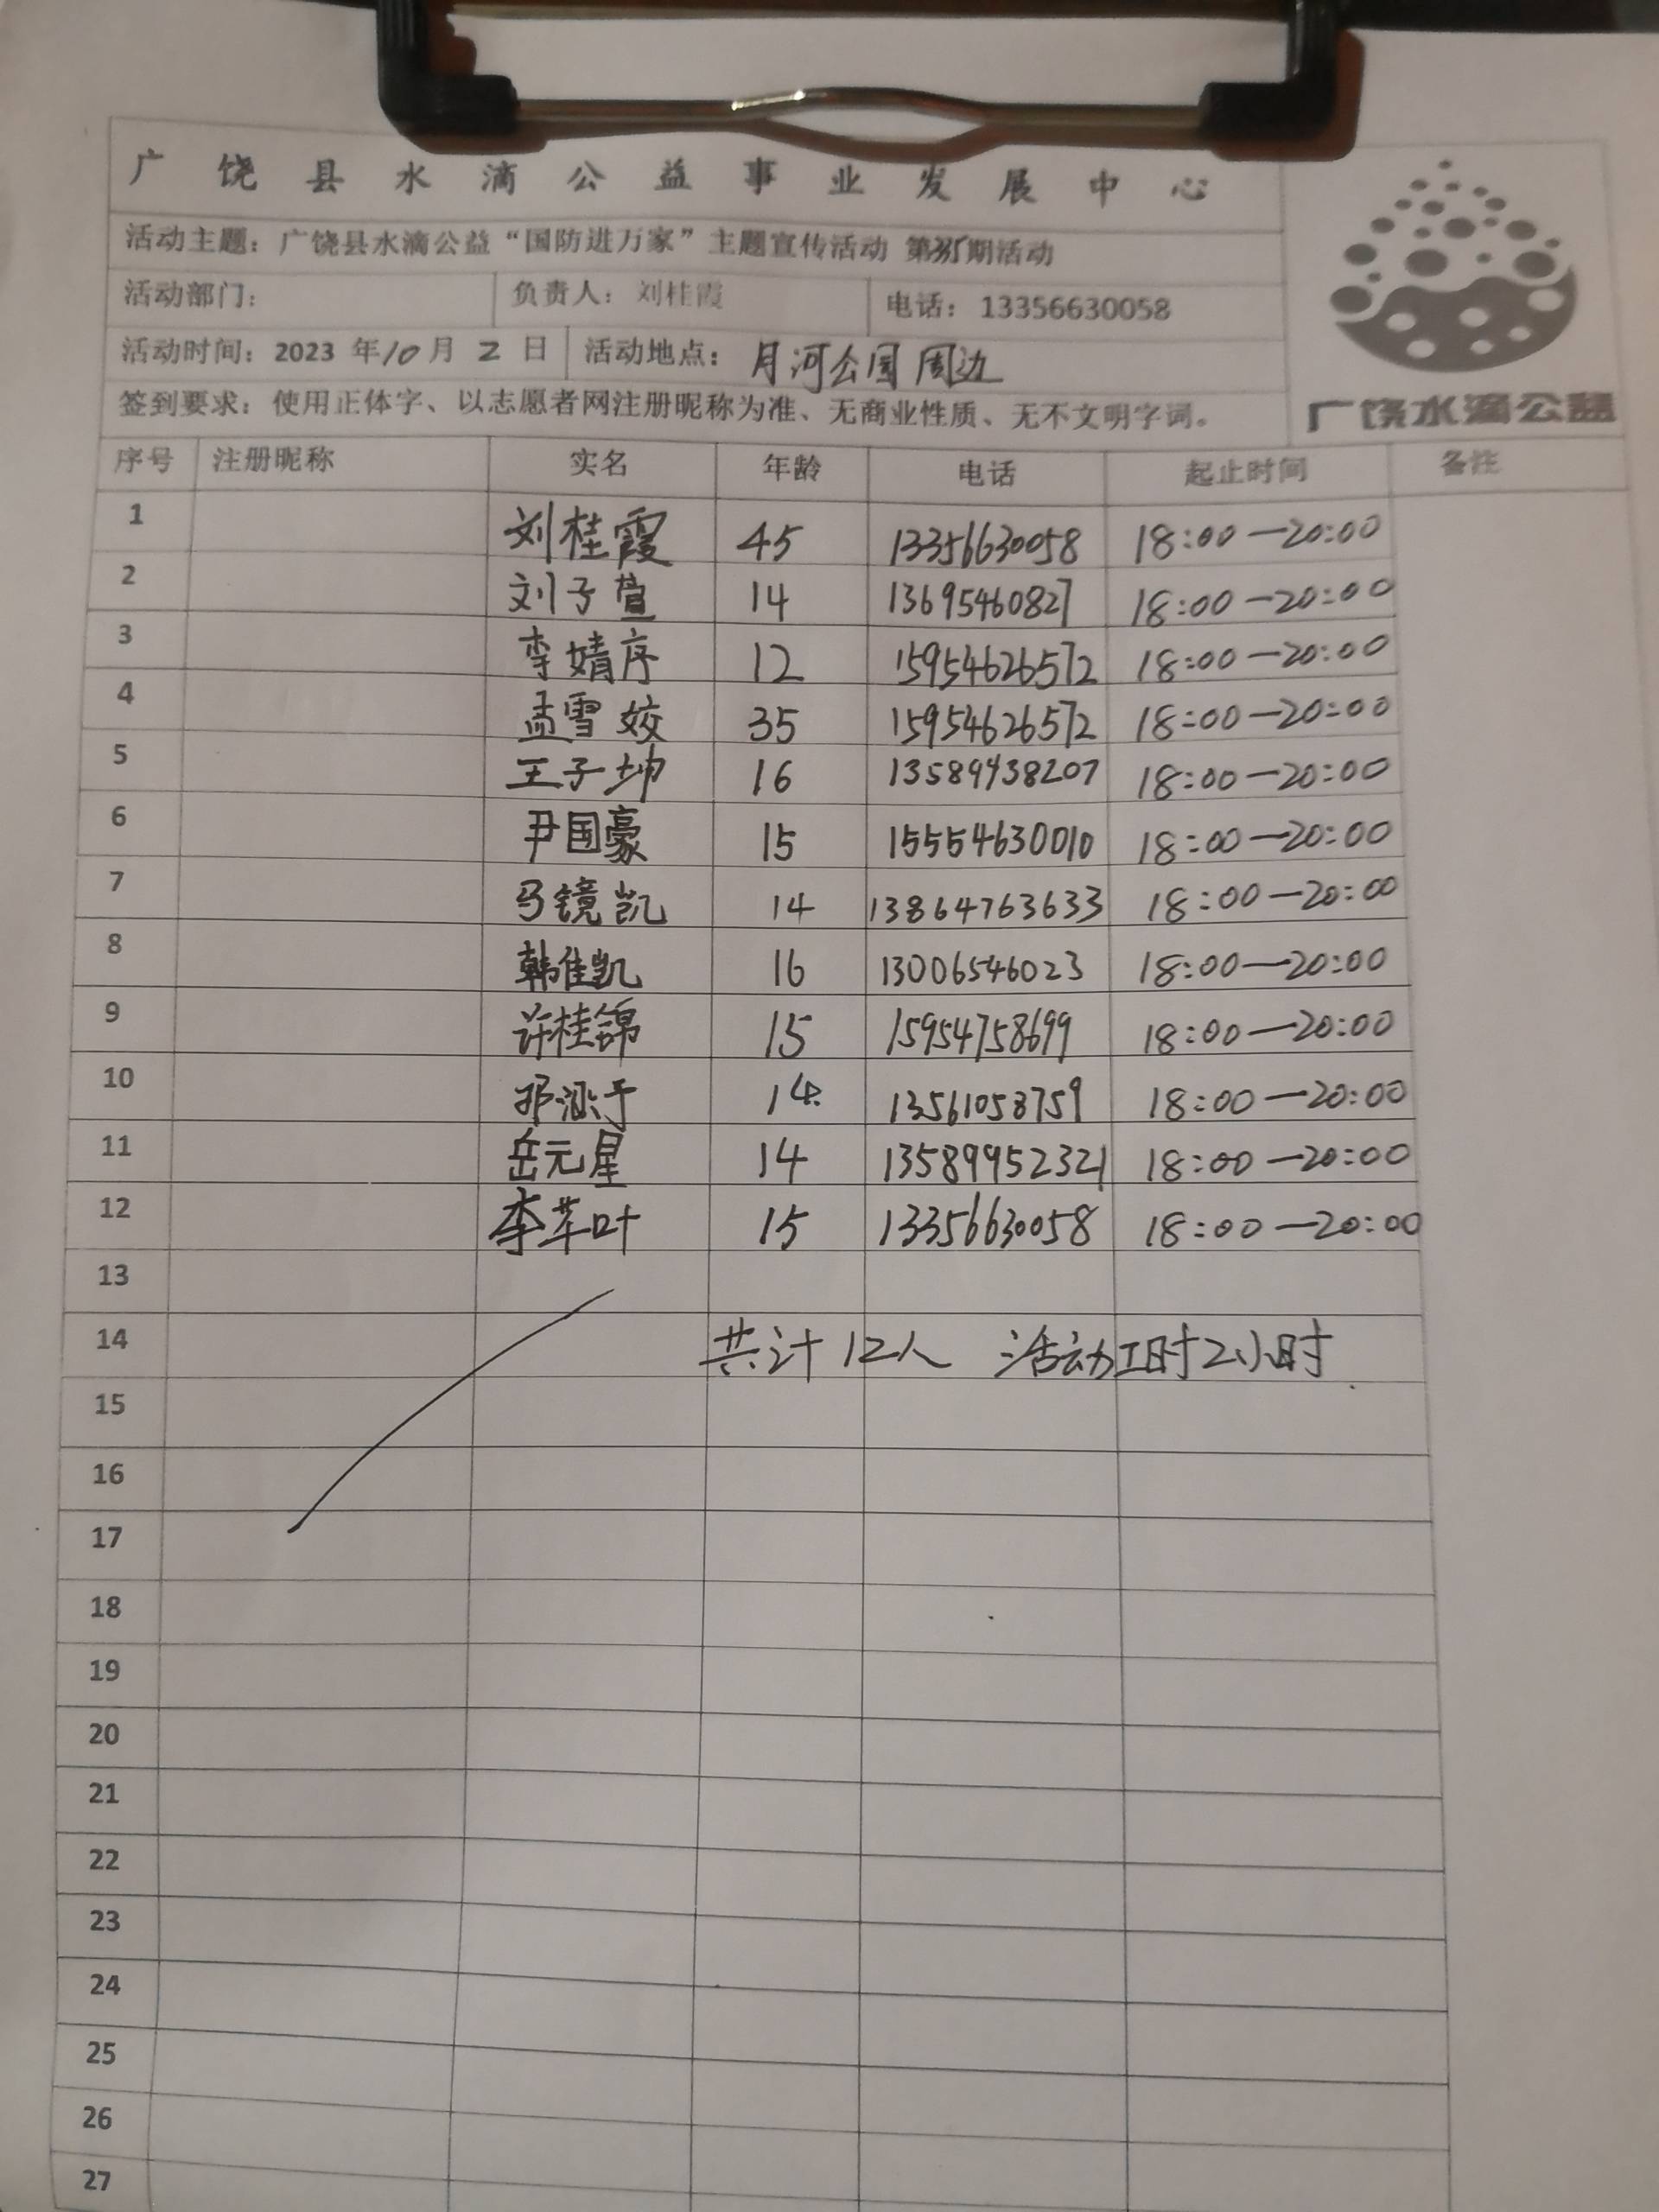 广饶县水滴公益事业发展中心
活动主题：广饶县水滴公益“国防进万家”主题宣传活动 第35期活动
活动部门： 负责人：刘桂霞 电话：13356630058
活动时间：2023 年10月 2 日 活动地点：月河公园周边
签到要求：使用正体字、以志愿者网注册昵称为准、无商业性质、无不文明字词。
广饶水滴公益
序号 注册昵称 实名 年龄 电话 起止时间 备注
1 刘桂霞 45 13356630058 18:00—20:00
2 刘子萱 14 13695460827 18:00—20:00
3 李婧序 12 15954626572 18:00—20:00
4 孟雪姣 35 15954626572 18:00—20:00
5 王子坤 16 13589438207 18:00—20:00
6 尹国豪 15 15554630010 18:00—20:00
7 马镜凯 14 13864763633 18:00—20:00
8 韩佳凯 16 13006546023 18:00—20:00
9 许桂锦 15 15954758699 18:00—20:00
10 14 13561058759 18:00—20:00
11 岳元星 14 13589952321 18:00—20:00
12 李苹叶 15 13356630058 18:00—20:00
13
14 共计12人 活动工时2小时
15
16
17
18
19
20
21
22
23
24
25
26
27